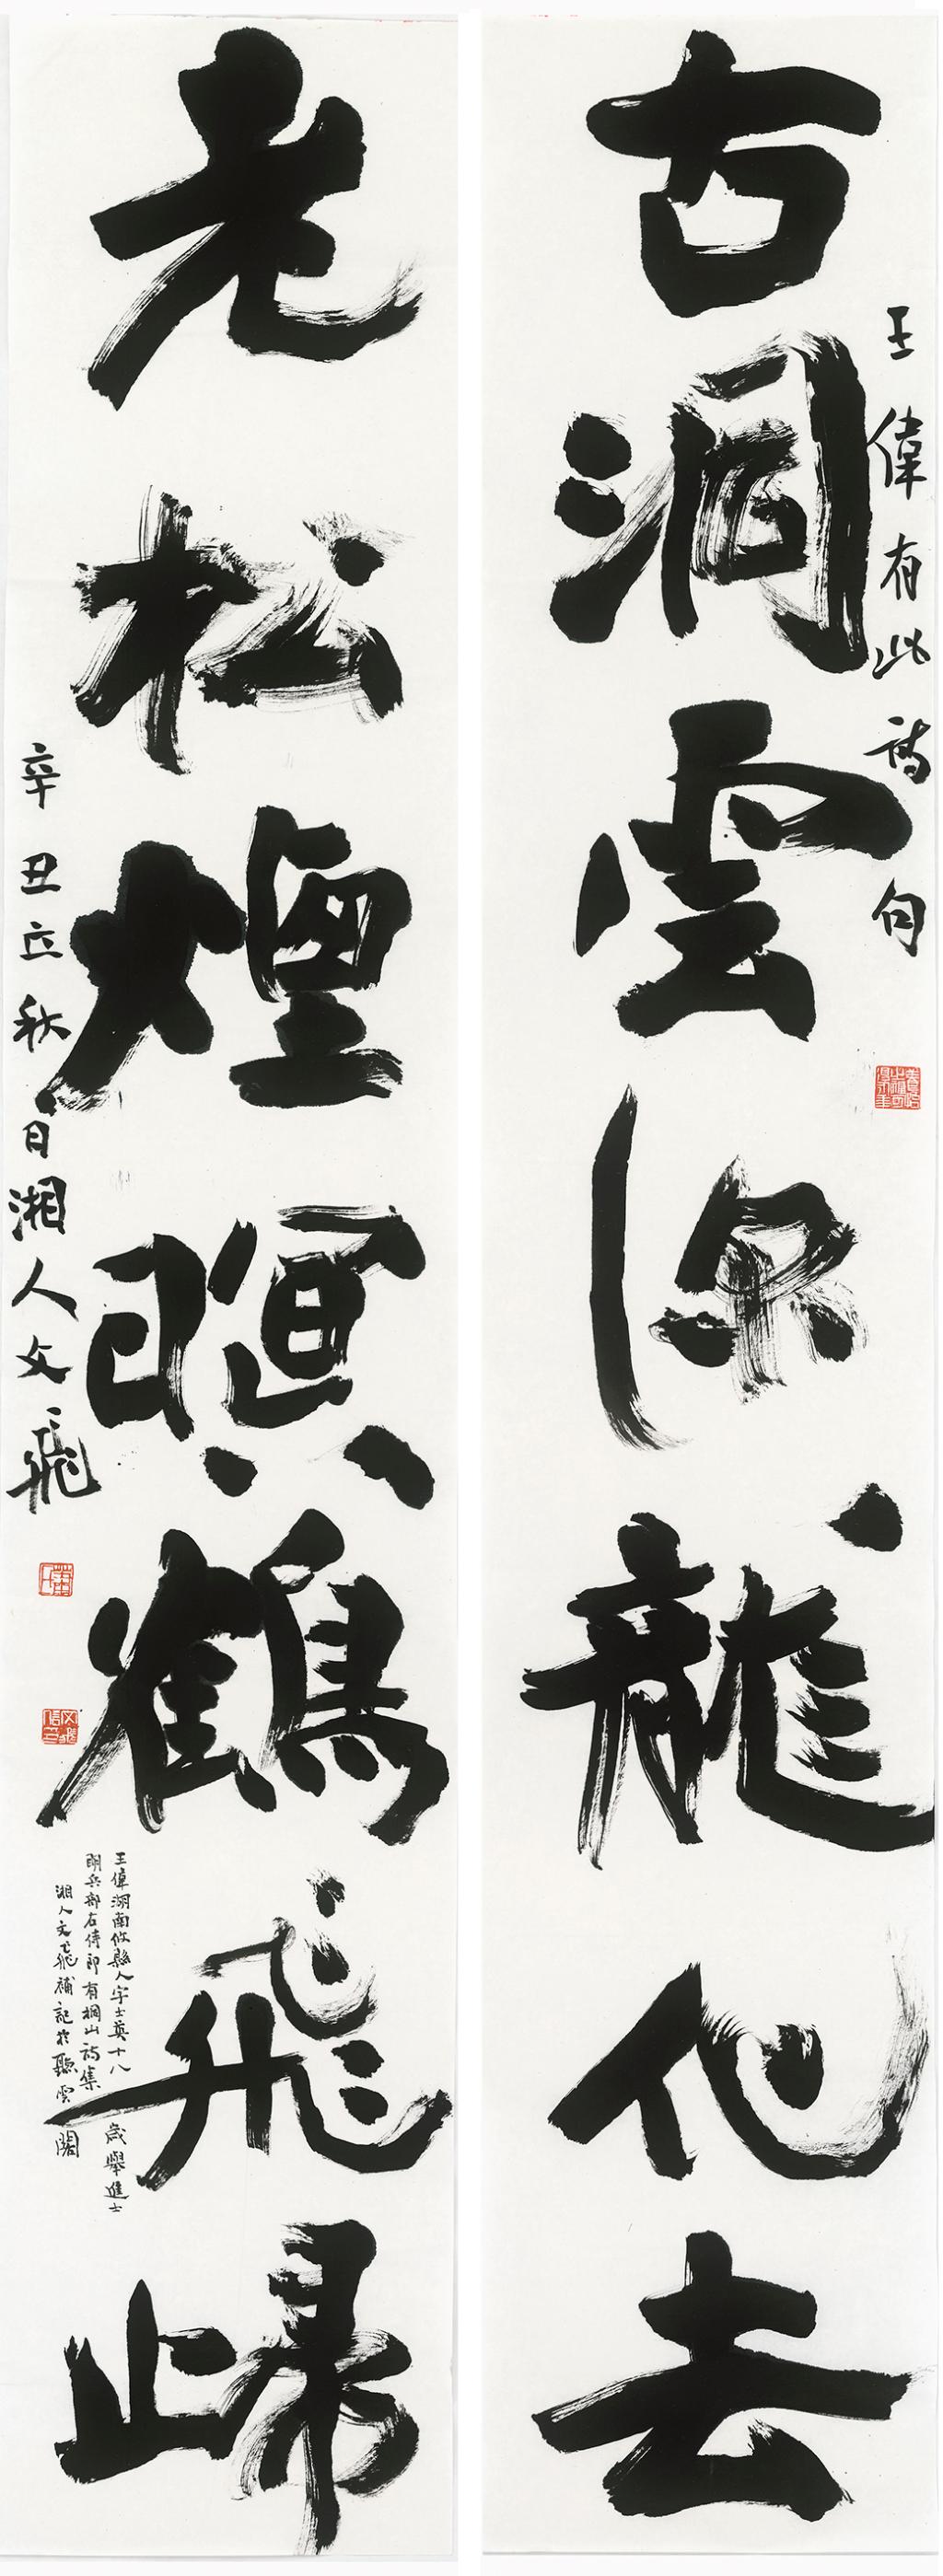 古洞雲深龍化去
王偉有此詩句
老松煙暝鶴飛歸
辛丑立秋日湘人文飛
王偉湖南攸縣人字士英十八歲舉進士
明兵部右侍郎有桐山詩集
湘人文飛補記於聽雲閣